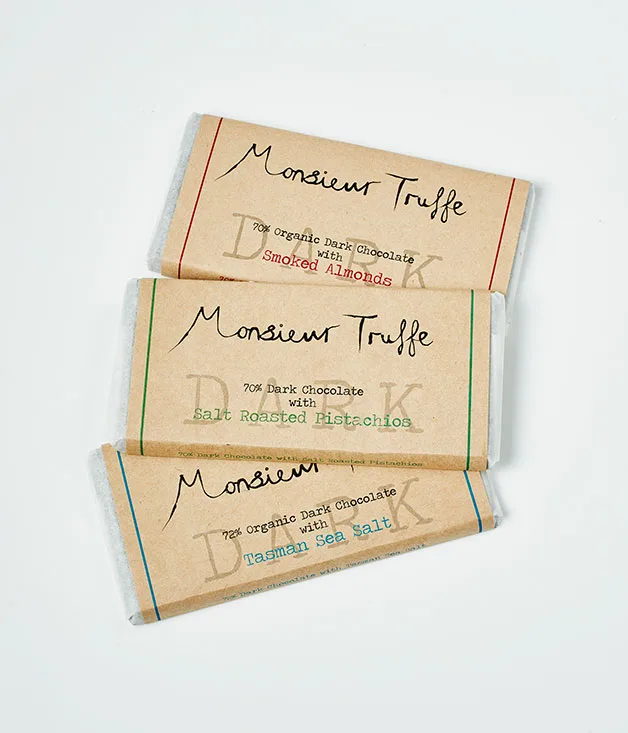 Monsieur Truffe
DARK
70% Organic Dark Chocolate
with
Smoked Almonds
Monsieur Truffe
DARK
70% Dark Chocolate
with
Salt Roasted Pistachios
70% Dark Chocolate with Salt Roasted Pistachios
Monsieur
DARK
72% Organic Dark Chocolate
with
Tasman Sea Salt
Dark Chocolate with Tasman Sea Salt